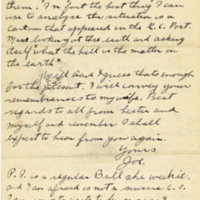 them. "In fact the best thing I can
use to analyze the situation is a
cartoon that appeared in the K.C. Post.
Mars looking at the earth and asking
itself "what the hell is the matter on
the earth".
Well Dad I guess thats enough
for the present. I will convey your
remembrances to my wife. Best
regards to all from here and
myself and remember I shall
expect to hear from you again.
Yours
Joe.
P.S. is a regular Bull she
and I am afraid not a